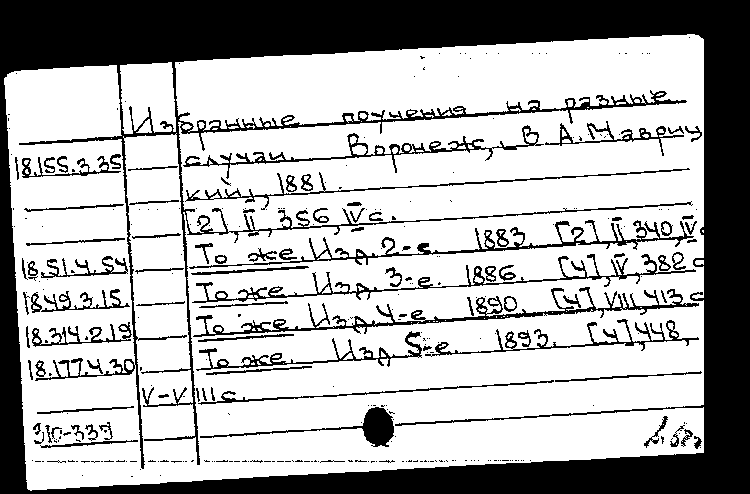 Избранные поучения на разные
18.155.3.35 случаи. Воронеж, В. А. Маврич
кий, 1881.
[2], II, 356, IV с.
18.51.4.54 То же. Изд. 2-е. 1883. [2], II, 340, IV с
18.49.3.15. То же. Изд. 3-е. 1886. [4], IV, 382 с
18.314.2.19 То же. Изд. 4-е. 1890. [4], VIII, 413 с
18.177.4.30 То же. Изд. 5-е. 1893. [4], 448,
V-VIII с.
310-339